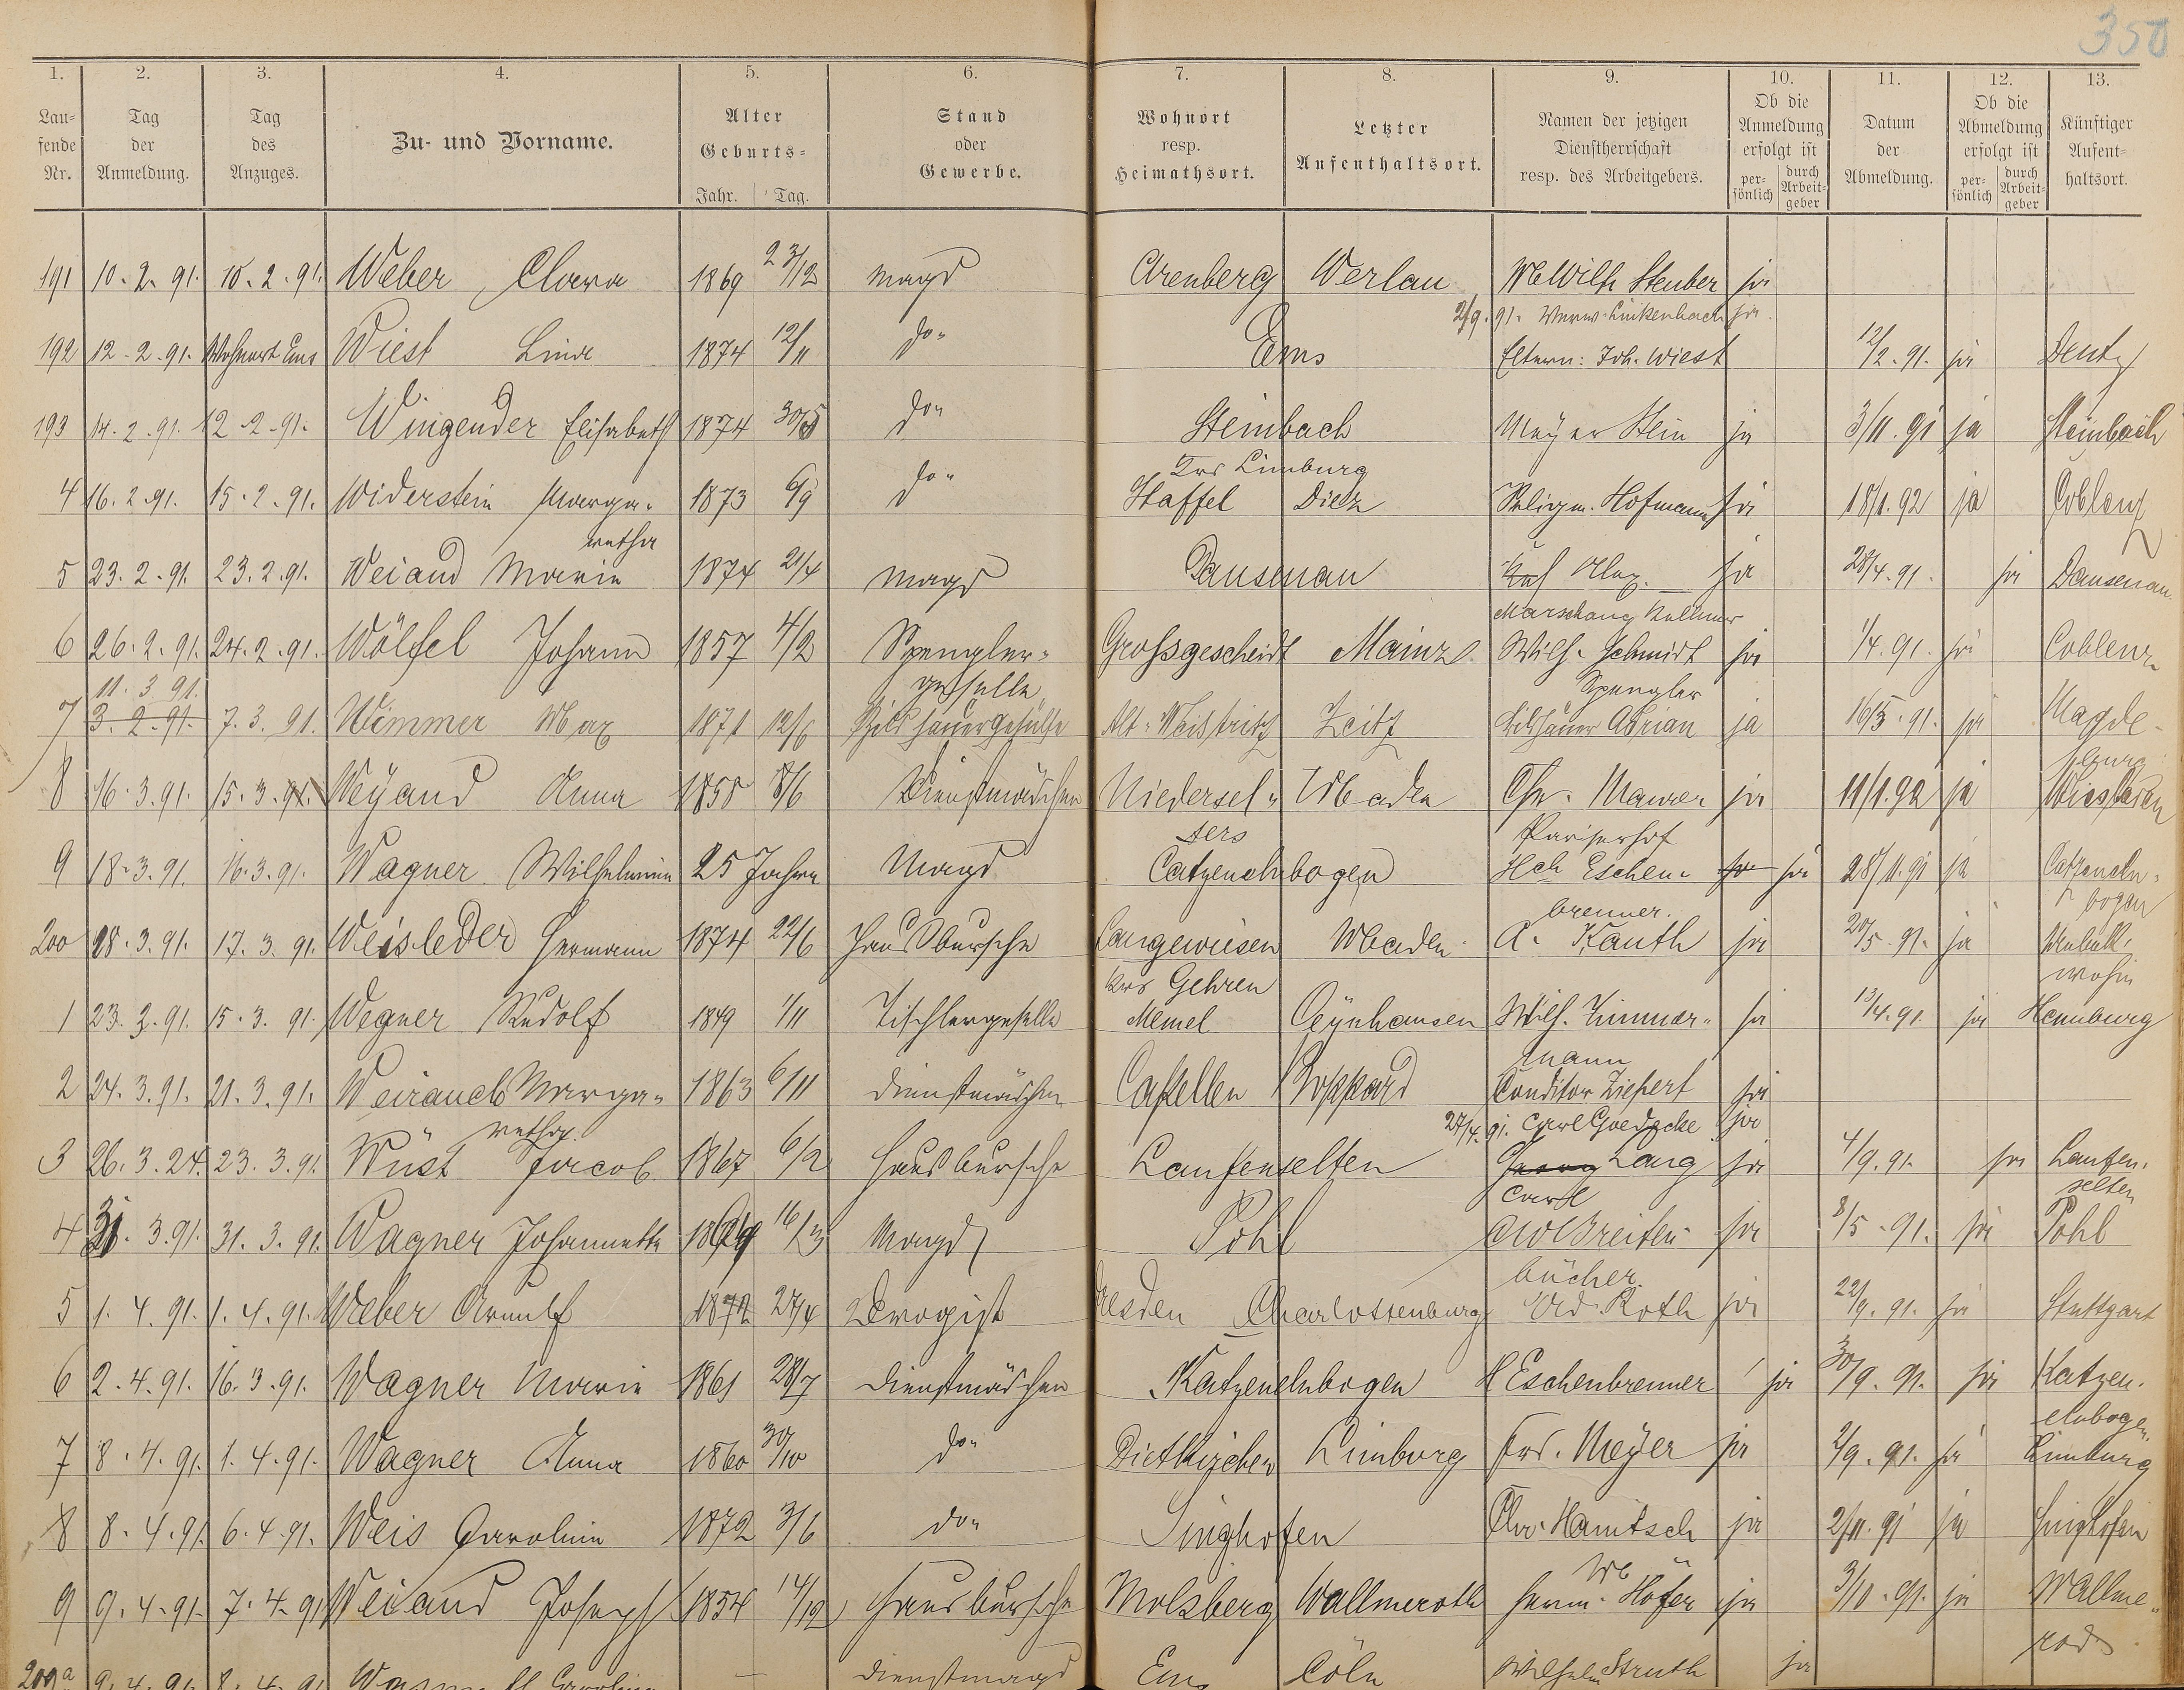 350
1. 2. 3. 4. 5. 6. 7. 8. 9. 10. 11. 12. 13.
Lau-
fende
Nr.
Tag
der
Anmeldung.
Tag
des
Anzuges.
Zu- und Vorname.
Alter
Geburts-
Jahr. Tag.
Stand
oder
Gewerbe.
Wohnort
resp.
Heimathsort.
Letzter
Aufenthaltsort.
Namen der jetzigen
Dienstherrschaft
resp. des Arbeitgebers.
Ob die
Anmeldung
erfolgt ist
per-
sönlich
durch
Arbeit-
geber
Datum
der
Abmeldung.
Ob die
Abmeldung
erfolgt ist
per-
sönlich
durch
Arbeit-
geber
Künftiger
Aufent-
haltsort.
191 10.2.91. 10.2.91. Weber Clara 1869 23/12 Magd Arenberg Werlau We Wilh Steuber ja
2/9.91. Linkenbach ja.
192 12.2.91. Wohnort Ems Wiest Lina 1874 12/11 do- Ems Eltern: Joh. Wiest 12/2.91. ja Deutz
193 14.2.91. 12.2.91. Wingender Elisabeth 1874 30/5 do- Steinbach Meyer Stein ja 3/11.91 ja Steinbach
Krs Limburg
4 16.2.91. 15.2.91. Widerstein Marga- 1873 6/9 do- Staffel Diez Seligm. Hofmann ja 18/1.92 ja Coblenz
retha
5 23.2.91. 23.2.91. Weiand Marie 1874 21/4 Magd Dausenau ja 28/4.91. ja Dausenau
6 26.2.91. 24.2.91. Wölfel Johann 1857 4/2 Spengler- Grossgescheidt Mainz Wilh. Schmidt ja 1/4.91. ja Coblenz
11.3 91. geselle Spengler
7 3.2.91. 7.3.91. Wimmer Max 1871 12/6 Bildhauergehülfe Alt-Weistritz Zeitz Bildhauer Adrian ja 16/5.91. ja Magde-
burg
8 16.3.91. 15.3.91. Weyand Anna 1858 8/6 Dienstmädchen Niedersel- Wbaden Chr. Maurer ja 11/1.92 ja Wiesbaden
ters Pariserhof
9 18.3.91. 16.3.91. Wagner Wilhelmine 25 Jahre Magd Catzenelnbogen Hch Eschen- ja ja 28/11.91 ja Catzeneln-
brenner. bogen
200 18.3.91. 17.3.91. Weisleder Hermann 1874 22/6 Hausbursche Langewiesen Wbaden A. Kauth ja 20/5.91. ja Unbek.
Krs Gehren wohin
1 23.3.91. 15.3.91. Wegner Rudolf 1849 1/11 Tischlergeselle Memel Oeynhausen Wilh. Zimmer- ja 13/4.91. ja Hamburg
mann
2 24.3.91. 21.3.91. Weirauch Marga- 1863 6/11 Dienstmädchen Capellen Boppard Conditor Ziepert ja
retha. 27/4.91. Carl Goedecke ja
3 26.3.24. 23.3.91. Wüst Jacob 1867 6/2 Hausbursche Laufenselten Georg Lang ja 4/9.91. ja Laufen-
Carl selten
4 31.3.91. 31.3.91. Wagner Johannette 1869 16/3 Magd Pohl Breiten- ja 8/5.91. ja Pohl
bücher.
5 1.4.91. 1.4.91. Weber Arnulf 1872 27/4 Drogist Dresden Charlottenburg Ad. Roth ja 22/9.91. ja Stuttgart
6 2.4.91. 16.3.91. Wagner Marie 1861 28/7 Dienstmädchen Katzenelnbogen H Eschenbrenner ja 30/9.91. ja Katzen-
elnbogen
7 8.4.91. 1.4.91. Wagner Anna 1860 30/10 do- Dietkirchen Limburg Frd. Meyer ja 2/9.91. ja Limburg
8 8.4.91. 6.4.91. Weis Caroline 1872 3/6 do- Singhofen Chr. Hanitsch ja 2/11.91 ja Singhofen
We
9 9.4.91. 7.4.91 Weiand Joseph 1854 14/12 Hausbursche Molsberg Wallmeroth Herm. Höfer ja 3/10.91. ja Wallme-
rod
209a 9.4.91 8.4.91 Caroline — Dienstmagd Ems Cöln Wilhelm Struth ja